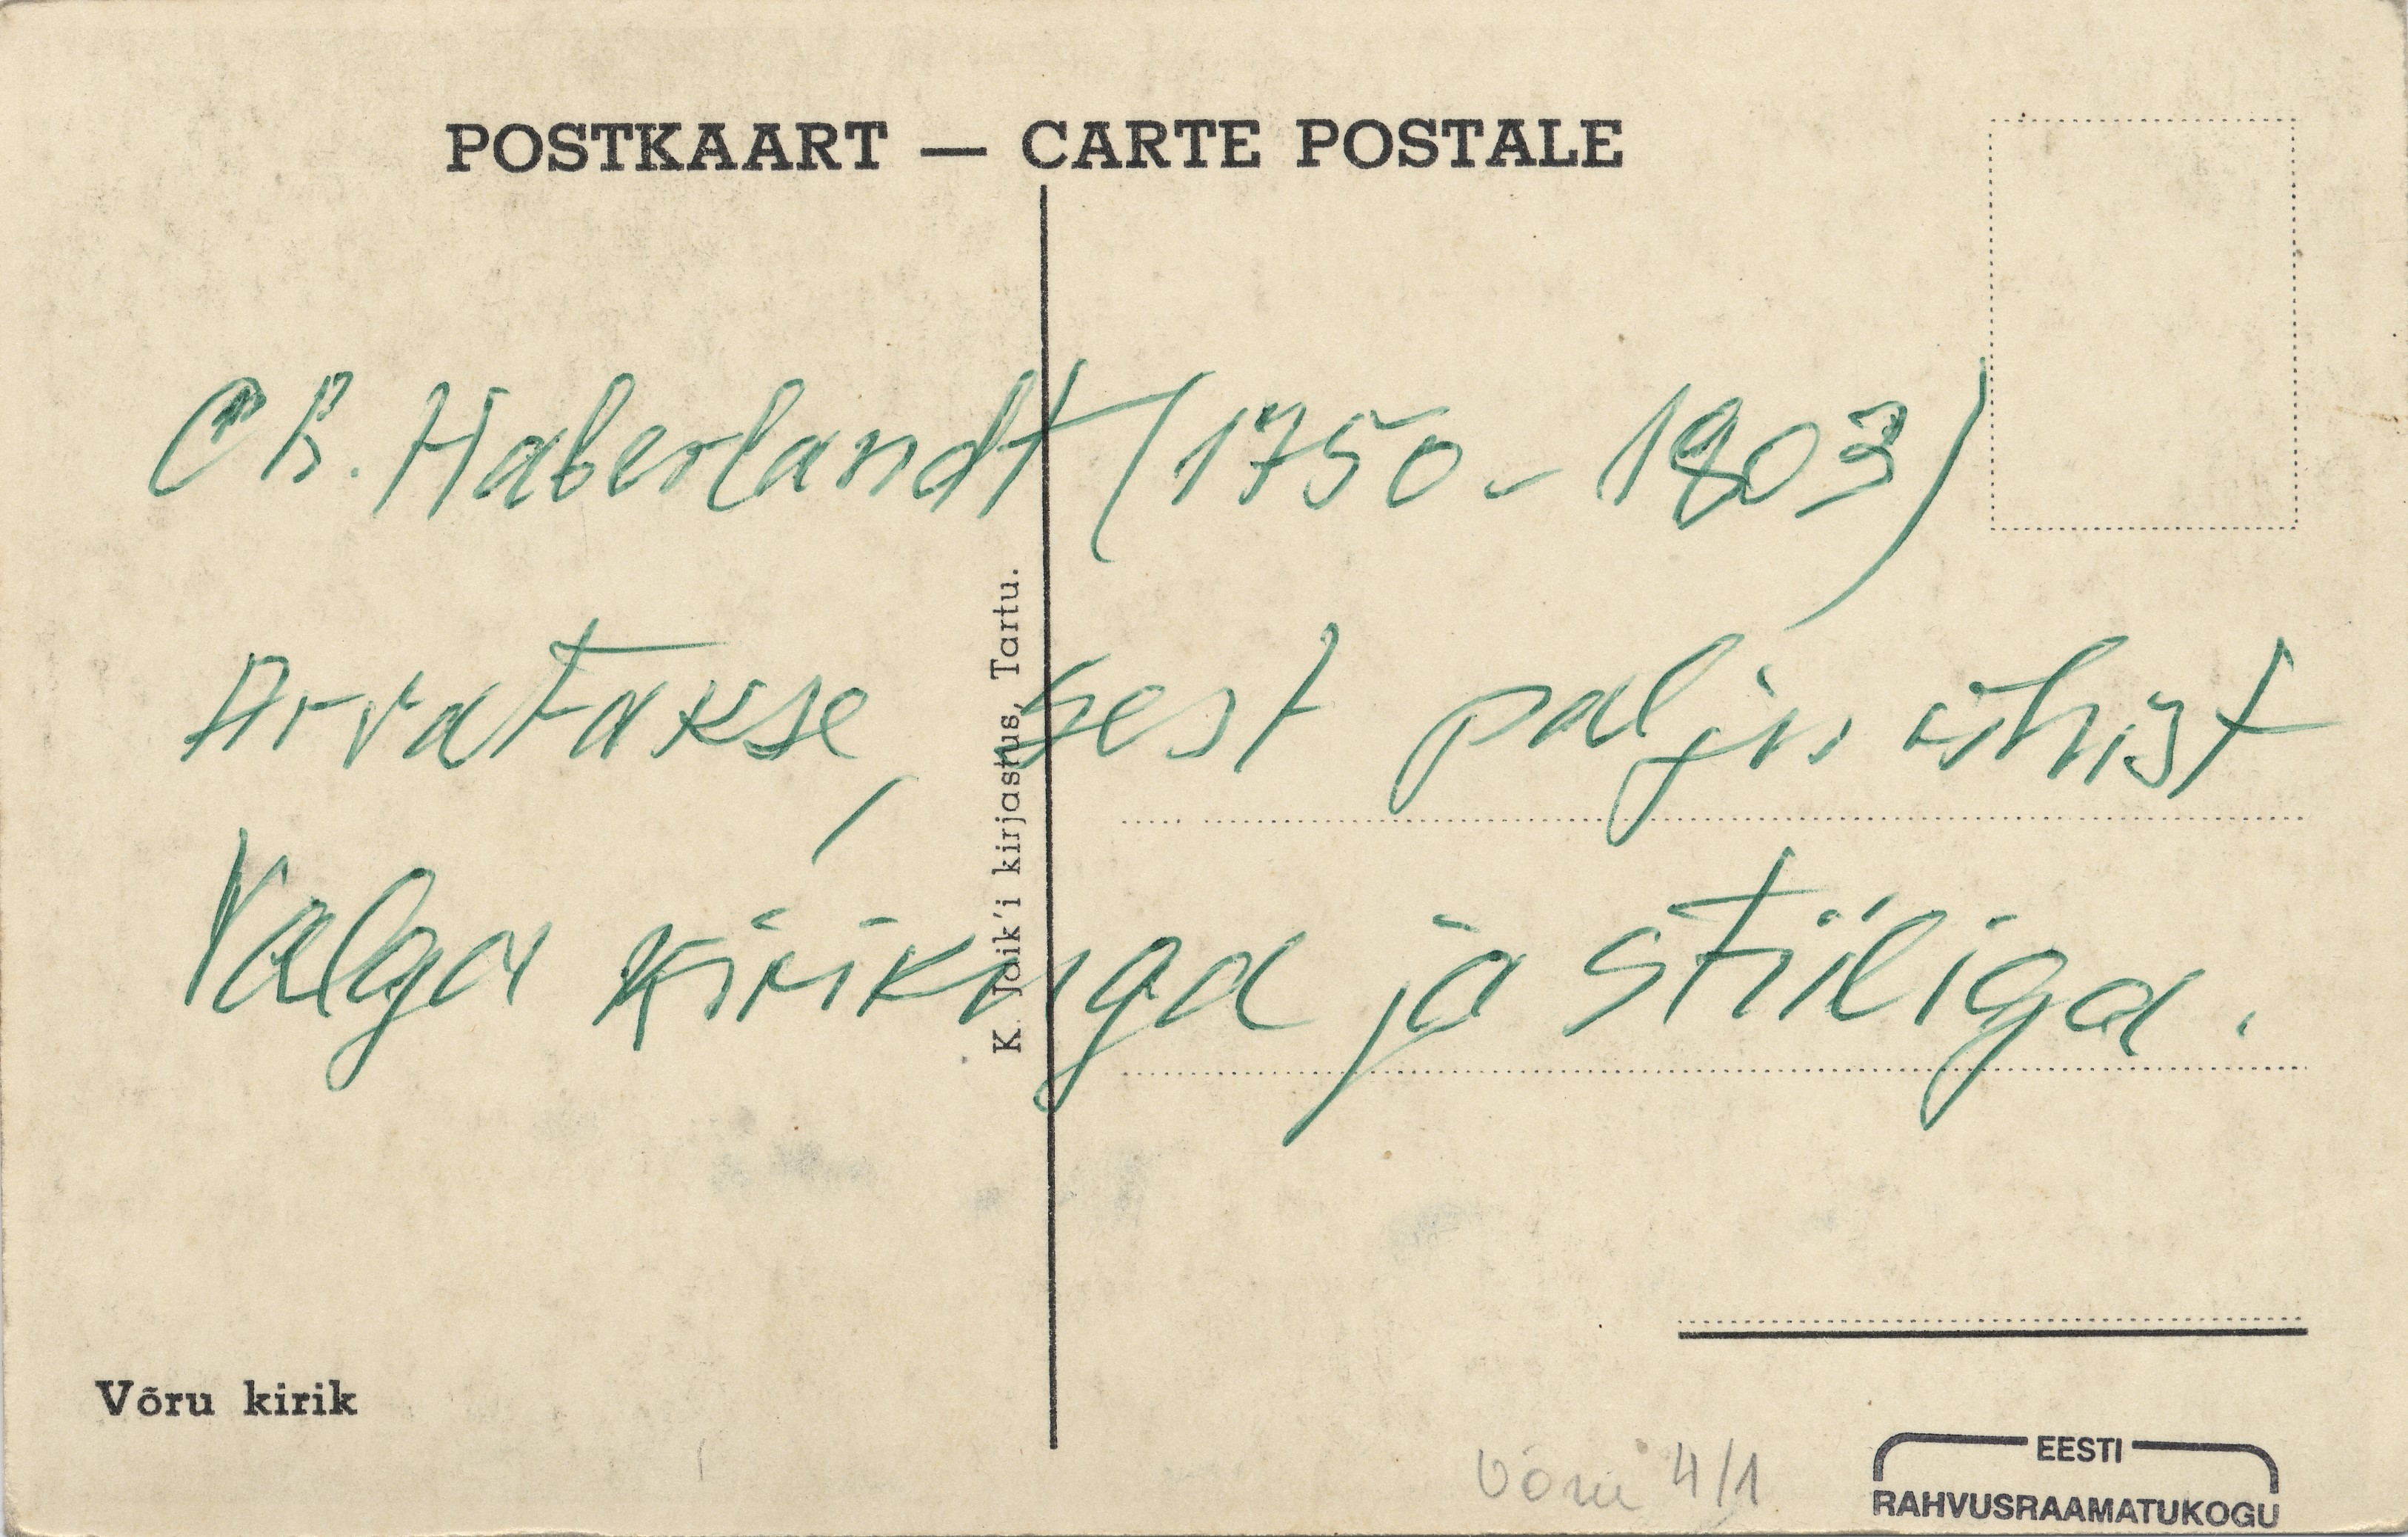 POSTKAART — CARTE POSTALE
Ch. Haberlandt (1750 - 1803)
Arvatakse, sest palju ühist
Valga kirikuga ja stiiliga.
K. Jaik'i kirjastus, Tartu.
Võru kirik
Võru 4/1
EESTI
RAHVUSRAAMATUKOGU